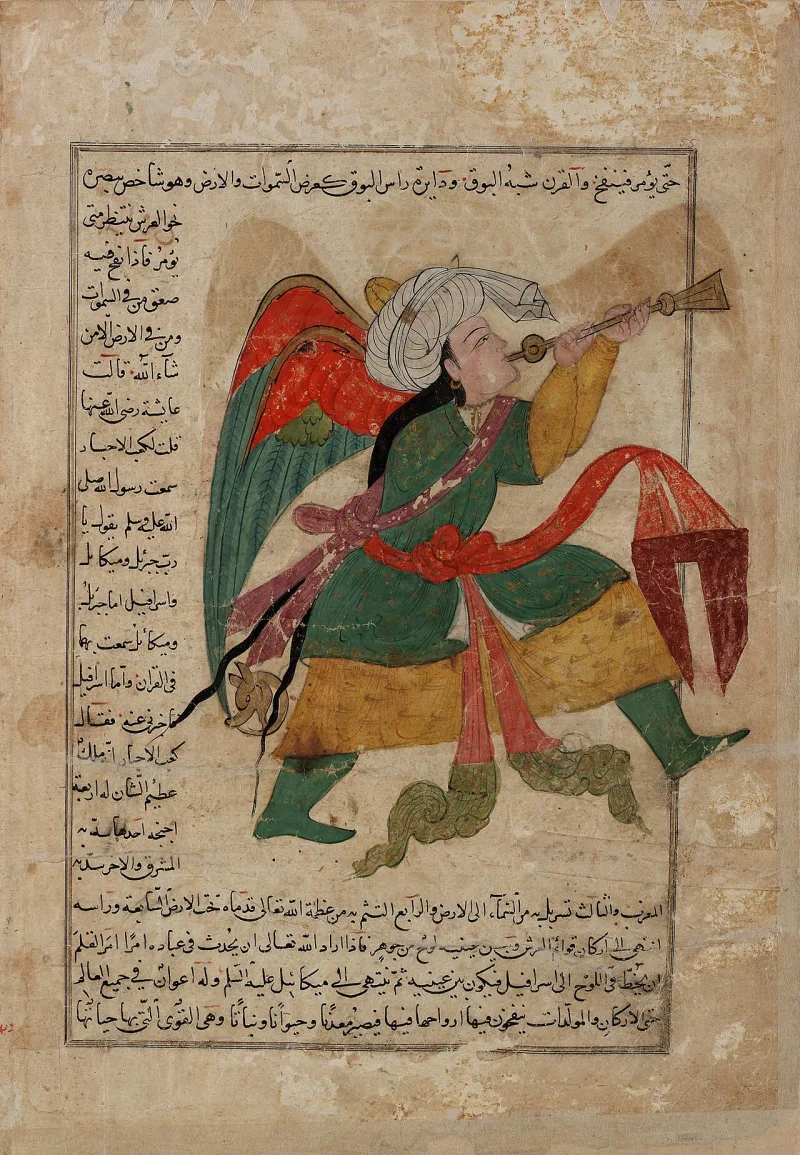 حتّى يؤمر فينفخ والقرن شبه البوق ودايرة راس البوق كعرض السّموات والارض وهو شاخص ببصره
نحو العرش ينتظر متى
يؤمر فاذا نفخ فيه
صعق من في السموات
ومن في الارض الا من
شاء الله قالت
عايشة رضي الله عنها
قلت لكعب الاحبار
سمعت رسول الله صلى
الله عليه وسلم يقول يا
ربّ جبرئيل وميكائيل
واسرافيل اما جبرئيل
وميكائيل سمعت بهما
في القران وامّا اسرافيل
فاخبرني عنه فقال
كعب الاحبار انّه ملك
عظيم الشّان له اربعة
اجنحة احدها سدّ به
المشرق والاخر سدّ به
المغرب والثالث تسربل به من السّماء الى الارض والرابع التثم به من عظمة الله تعالى قدماه تحت الارض السّابعة وراسه
انتهى الى اركان قوائم العرش وبين عينيه لوح من جوهر فاذا اراد الله تعالى ان يُحدث في عباده امرًا امر القلم
ان يخطّ في اللوح الى اسرافيل فيكون بين عينيه ثمّ ينتهي الى ميكائيل عليه السّلم وله اعوان في جميع العالم
حتى الاركان والمولّدات ينفخون فيها ارواحها فيها فيصير معدنًا وحيوانًا ونباتًا وهي القوى التي بها حياتها